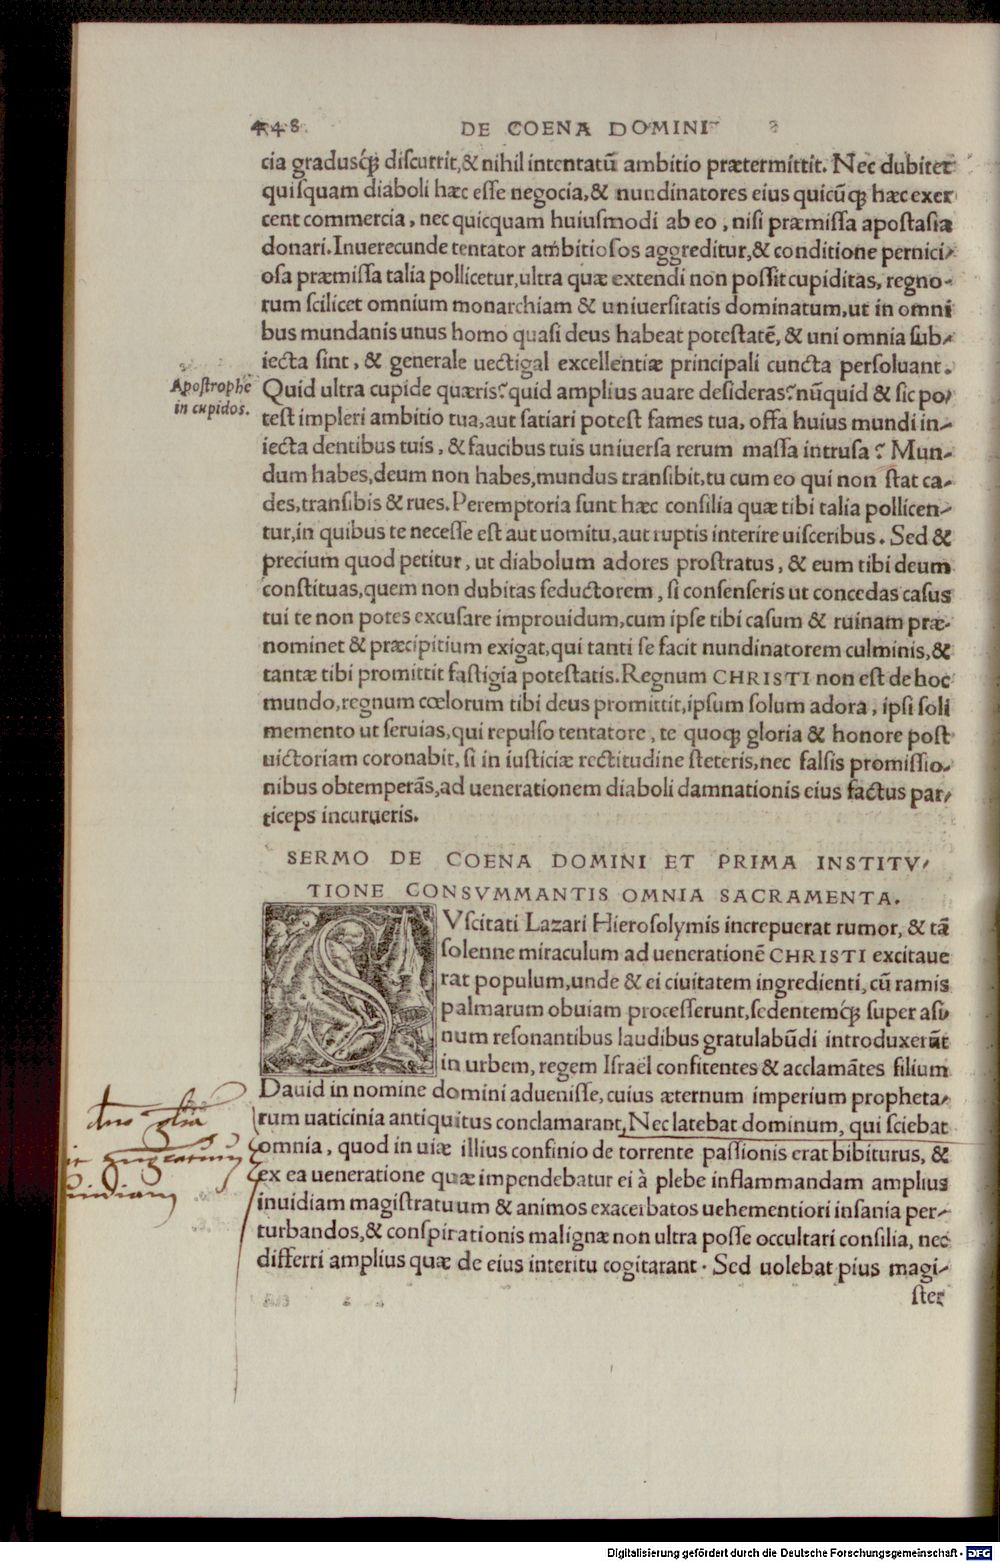 448 DE COENA DOMINI
cia graduscꝫ discurrit,& nihil intentatũ ambitio prætermittit. Nec dubitet
quisquam diaboli hæc esse negocia,& nundinatores eius quicũqꝫ hæc exer
cent commercia, nec quicquam huiusmodi ab eo, nisi præmissa apostasia
donari. Inuerecunde tentator ambitiosos aggreditur,& conditione pernici-
osa præmissa talia pollicetur,ultra quæ extendi non possit cupiditas, regno-
rum scilicet omnium monarchiam & uniuersitatis dominatum,ut in omni
bus mundanis unus homo quasi deus habeat potestatẽ, & uni omnia sub-
iecta sint, & generale uectigal excellentiæ principali cuncta persoluant.
Apostrophe
in cupidos.
Quid ultra cupide quæris? quid amplius auare desideras? nũquid & sic po-
test impleri ambitio tua,aut satiari potest fames tua, offa huius mundi in-
iecta dentibus tuis, & faucibus tuis uniuersa rerum massa intrusa? Mun-
dum habes,deum non habes,mundus transibit,tu cum eo qui non stat ca-
des,transibis & rues. Peremptoria sunt hæc consilia quæ tibi talia pollicen-
tur,in quibus te necesse est aut uomitu,aut ruptis interire uisceribus. Sed &
precium quod petitur, ut diabolum adores prostratus, & eum tibi deum
constituas,quem non dubitas seductorem, si consenseris ut concedas casus
tui te non potes excusare improuidum,cum ipse tibi casum & ruinam præ-
nominet & præcipitium exigat,qui tanti se facit nundinatorem culminis,&
tantæ tibi promittit fastigia potestatis. Regnum CHRISTI non est de hoc
mundo,regnum cœlorum tibi deus promittit,ipsum solum adora, ipsi soli
memento ut seruias,qui repulso tentatore, te quoqꝫ gloria & honore post
uictoriam coronabit, si in iusticiæ rectitudine steteris,nec falsis promissio-
nibus obtemperãs,ad uenerationem diaboli damnationis eius factus par-
ticeps incurueris.
SERMO DE COENA DOMINI ET PRIMA INSTITV-
TIONE CONSVMMANTIS OMNIA SACRAMENTA.
SVscitati Lazari Hierosolymis increpuerat rumor, & tã
solenne miraculum ad uenerationẽ CHRISTI excitaue
rat populum,unde & ei ciuitatem ingredienti, cũ ramis
palmarum obuiam processerunt,sedentemqꝫ super asi-
num resonantibus laudibus gratulabũdi introduxerũt
in urbem, regem Israël confitentes & acclamãtes filium
Dauid in nomine domini aduenisse, cuius æternum imperium propheta-
rum uaticinia antiquitus conclamarant, Nec latebat dominum, qui sciebat
omnia, quod in uiæ illius confinio de torrente passionis erat bibiturus, &
ex ea ueneratione quæ impendebatur ei à plebe inflammandam amplius
inuidiam magistratuum & animos exacerbatos uehementiori insania per-
turbandos,& conspirationis malignæ non ultra posse occultari consilia, nec
differri amplius quæ de eius interitu cogitarant. Sed uolebat pius magi-
ster